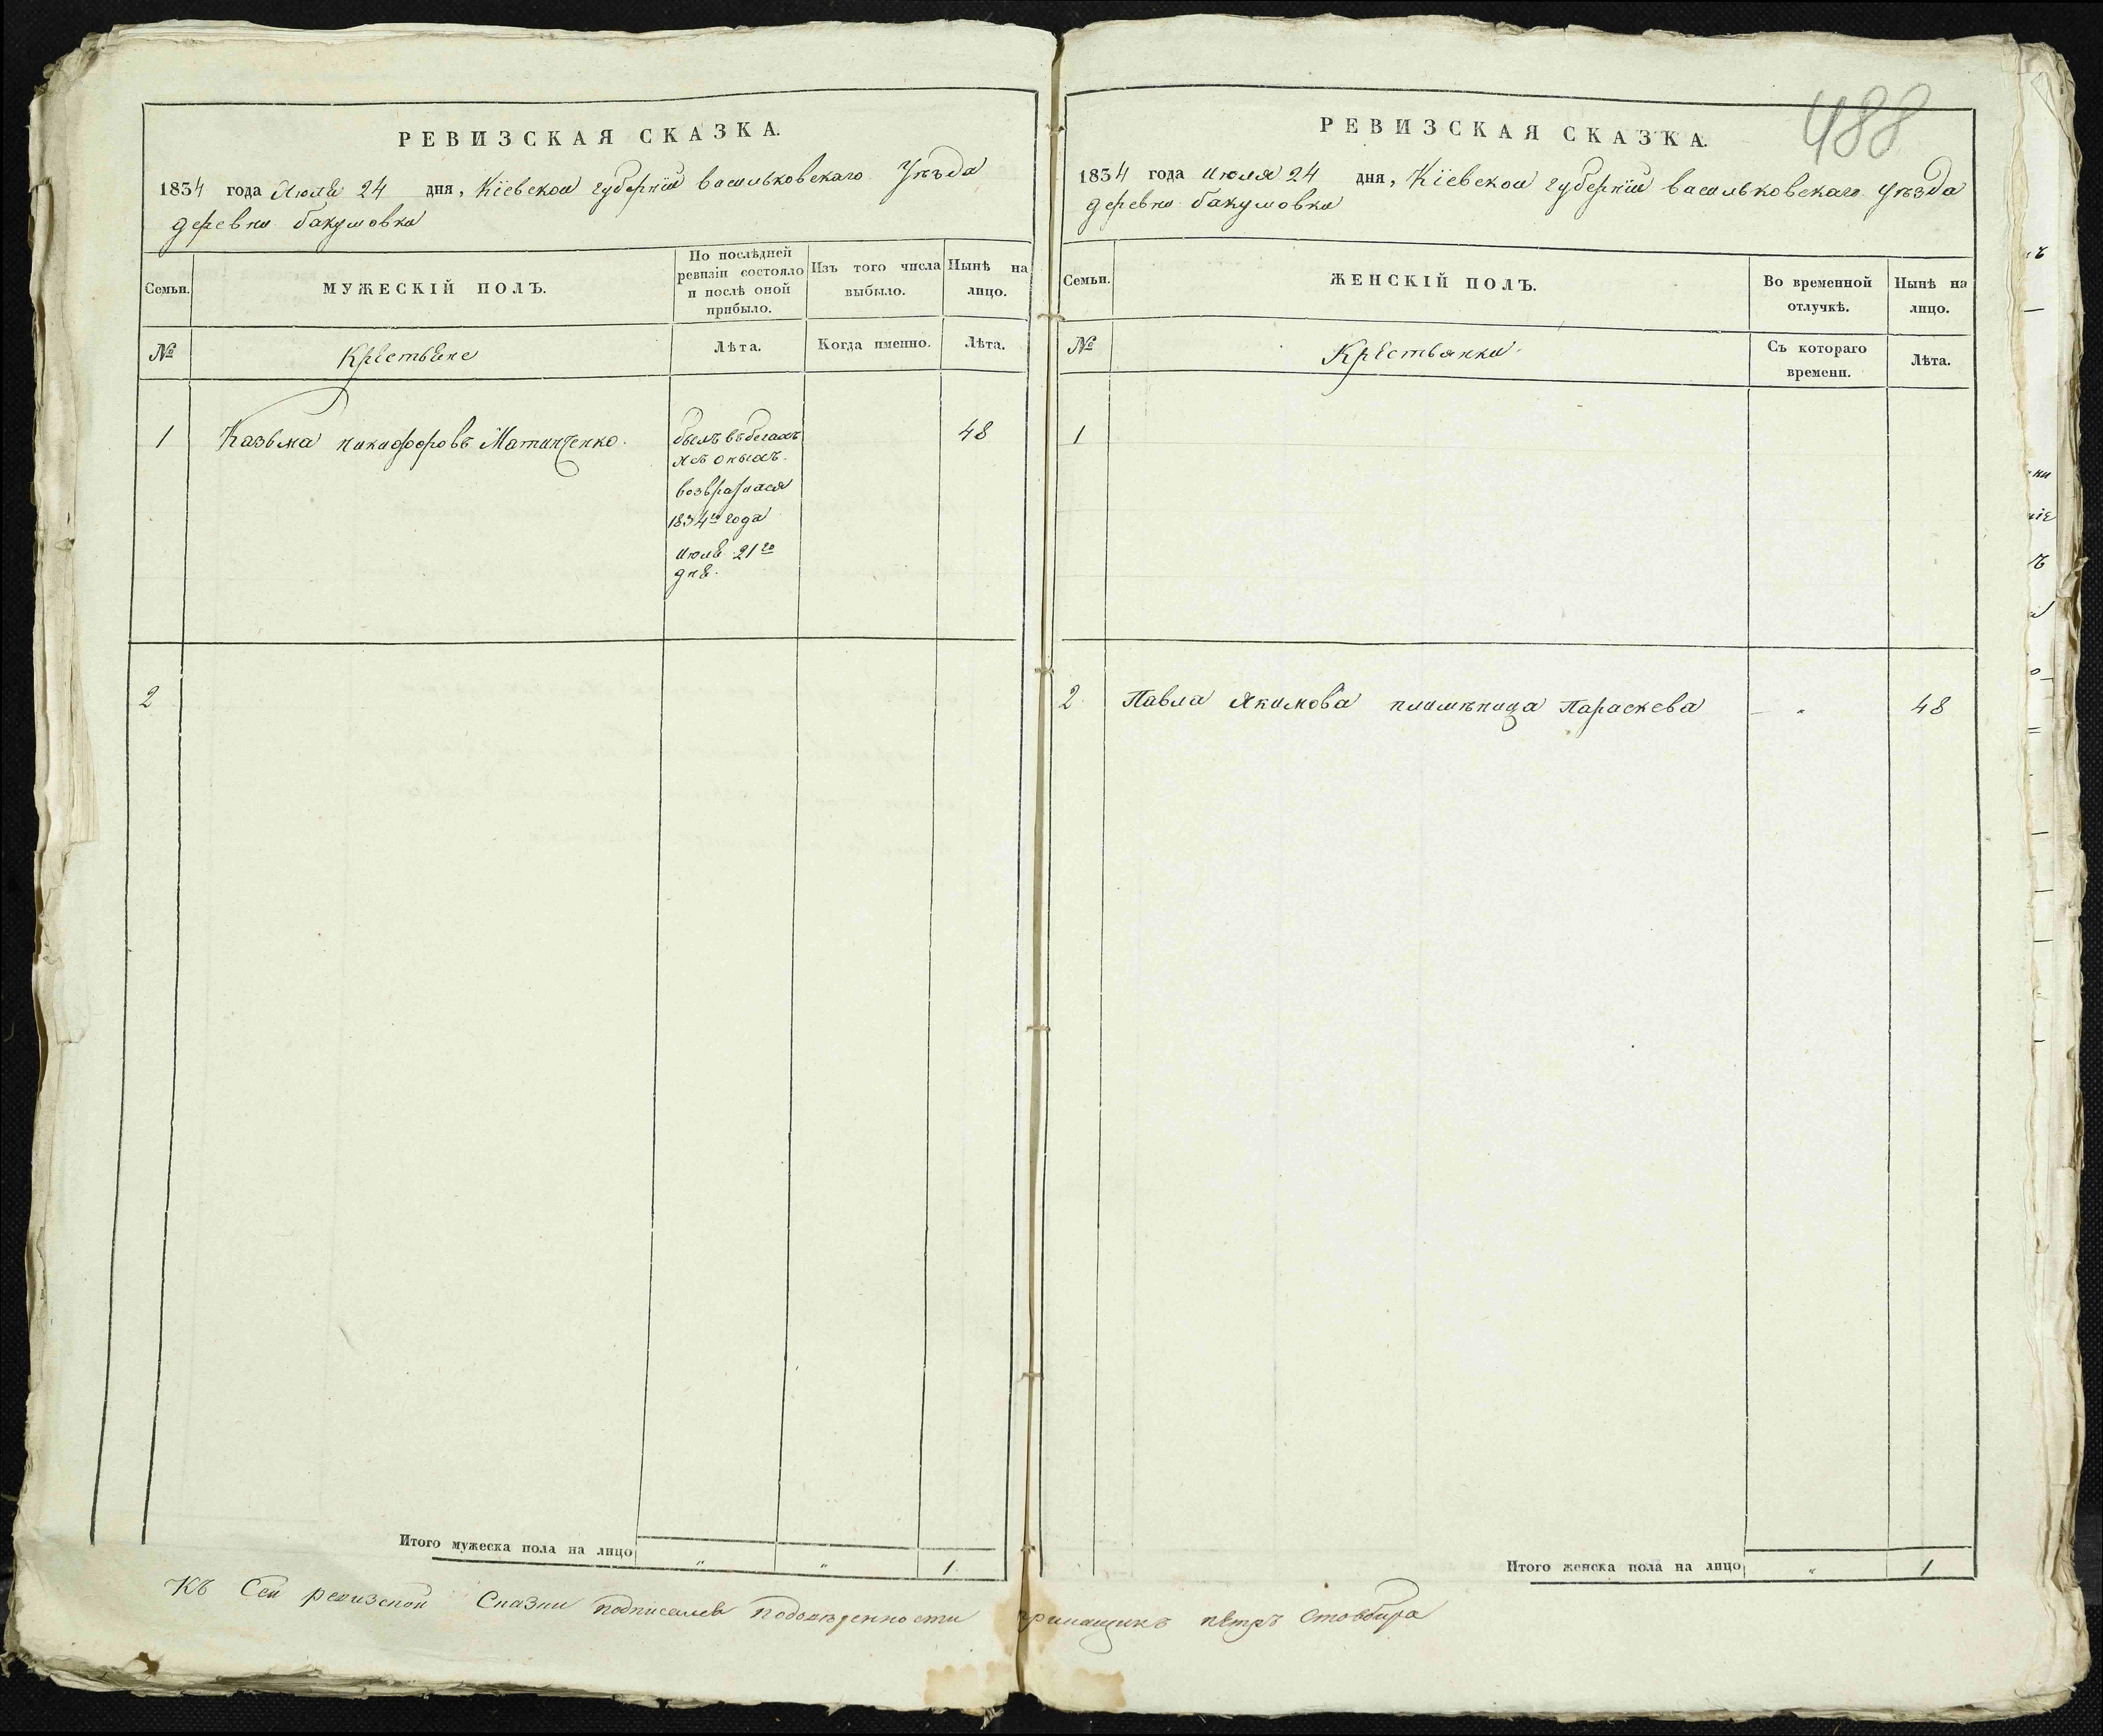 488
РЕВИЗСКАЯ СКАЗКА.
1834 года Июля 24 дня, Кіевской губерніи васильковскаго Уѣзда
деревни бакумовки
Семьи.
МУЖЕСКІЙ ПОЛЪ.
По послѣдней
ревизіи состояло
и послѣ оной
прибыло.
Изъ того числа
выбыло.
Нынѣ на
лицо.
№
Крестьяне
Лѣта.
Когда именно.
Лѣта.
1 Казьма никифоровъ 48
былъ въ бегахъ
изъ оныхъ
1834го года
июля 21го
дня.
2
Итого мужеска пола на лицо " " 1
РЕВИЗСКАЯ СКАЗКА.
1834 года июля 24 дня, Кіевской губерніи васильковскаго уѣзда
деревни бакумовки
Семьи.
ЖЕНСКІЙ ПОЛЪ.
Во временной
отлучкѣ.
Нынѣ на
лицо.
№
Крестьянки
Съ котораго
времени.
Лѣта.
1
2 Павла Якимова племѣница Параскева — " 48
Итого женска пола на лицо " 1
Къ Сей ревизской Сказки подписался прикащикъ пѣтръ